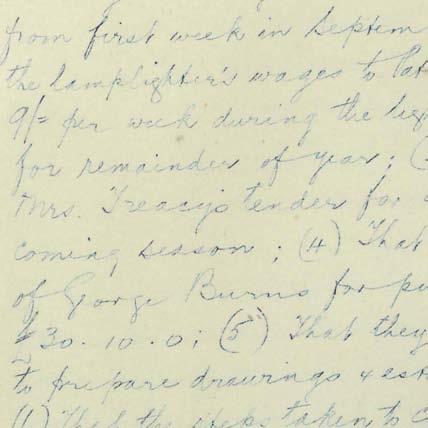 from first week in Septem
the lamplighter's wages to Pat
9/= per week during the lig
for remainder of year; (
Mrs. Treacy's tender for
coming season; (4) That
of George Burns for pu
£30.10.0; (5) That they
to prepare drawings & est
(1) That the steps taken to c